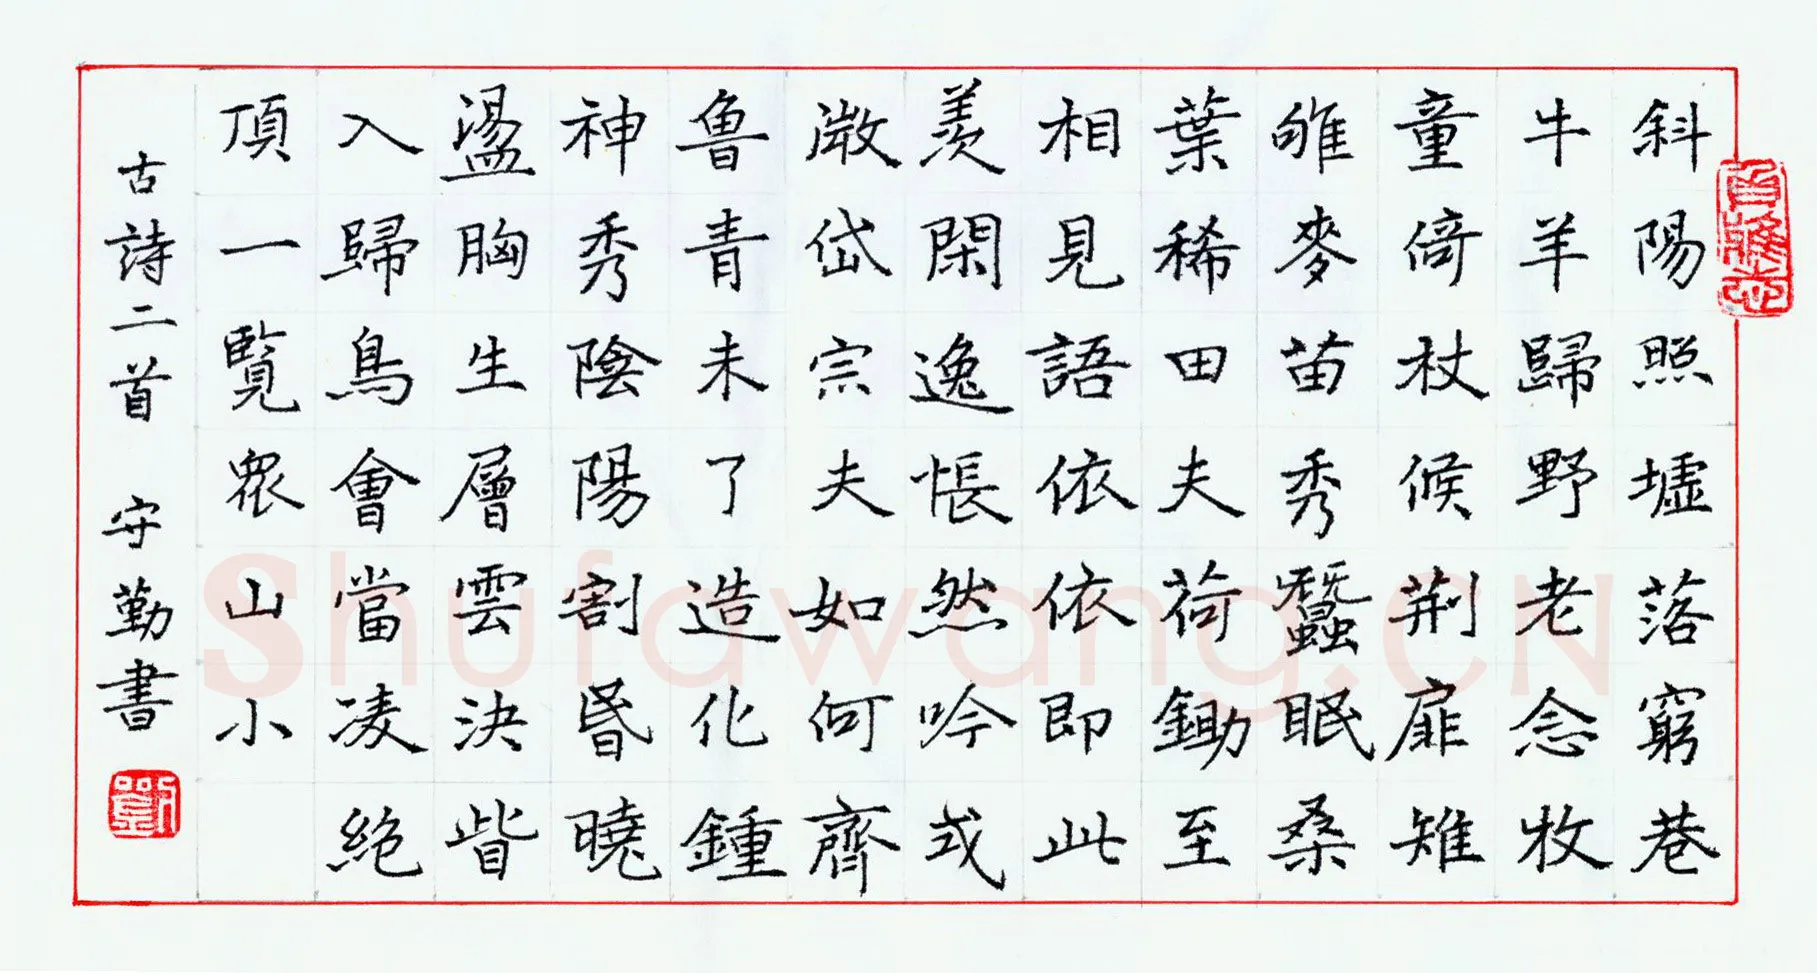 斜陽照墟落窮巷
牛羊歸野老念牧
童倚杖候荆扉雉
雊麥苗秀蠶眠桑
葉稀田夫荷鋤至
相見語依依即此
羨閑逸悵然吟式
微岱宗夫如何齊
魯青未了造化鍾
神秀陰陽割昬曉
盪胸生層雲決眥
入歸鳥會當凌絕
頂一覽眾山小
古詩二首 守勤書
劉
Shufawang.CN